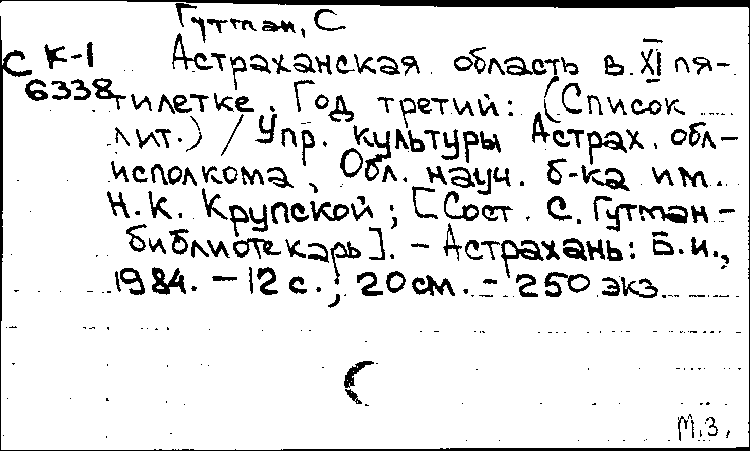 Гутман, С
С К-1
6338
Астраханская область в XI пя-
тилетке. Год третий: (Список
лит.) / Упр. культуры Астрах. обл-
исполкома, Обл. науч. б-ка им.
Н.К. Крупской; [Сост. С. Гутман -
библиотекарь]. - Астрахань: Б.и.,
1984. - 12 с.; 20 см. - 250 экз.
М.З.